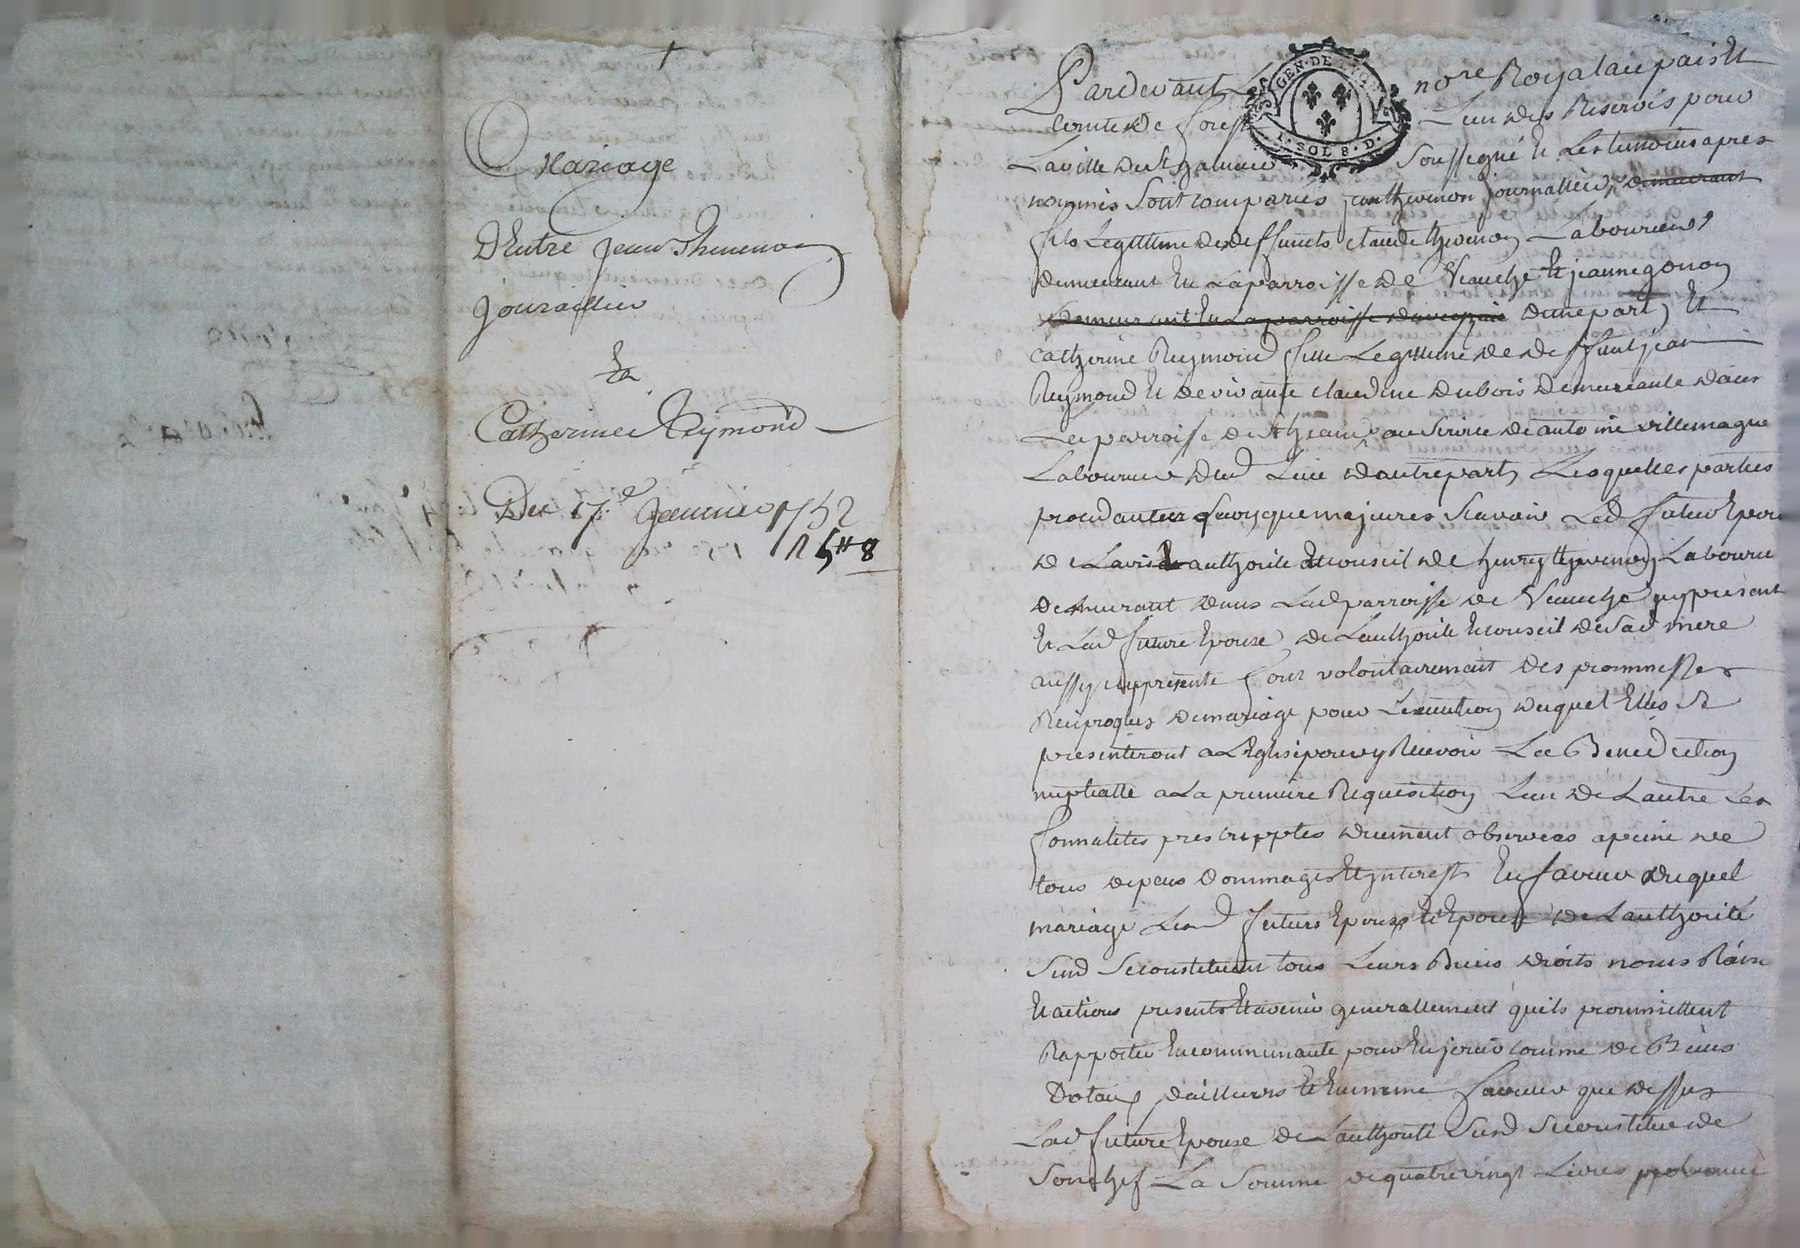 Mariage
D'Entre Jean Thevenon
Journallier
Et
Catherine Reymond
Du 17.e Janvier 1752
5# 8
GEN. DE LYON
1. SOL 8. D.
Pardevant Le nore Royal au pais Et
Comté De forest L'un des Reservés pour
La ville de St Galmier Soussigné Et Les temoins apres
nommés Sont comparus jean thevenon journallier, demeurant
fils Legittime de deffunts claude thevenon Laboureur
demeurant En La parroisse de Veauche Et jeanne gonon
demeurant En La parroisse d'une part, Et
Catherine Reymond fille Legittime de deffunt jean
Reymond Et de vivante claudine dubois demeurante dans
La parroisse de au Service de antoine villemagne
Laboureur dud Lieu d'autre part, Lesquelles parties
procedantes quoyque majeures Scavoir Led futur Epoux
de L'avis authorité et conseil de henry thevenon Laboureur
demeurant dans Lad parroisse de Veauche icy présent
Et Lad future Epouse de L'authorité Et conseil de Sad mere
aussy icy présente font volontairement des prommesses
Reciproques de mariage pour L'execution duquel Elles Se
presenteront a L'Eglise pour y Recevoir La Benediction
nuptialle a La premiere Requisition L'un de L'autre Les
formalités prescripptes duement observées a peine de
tous depens dommages Et interests En faveur duquel
mariage Lesd futurs Epoux Et Epouse de L'authorité
Susd Se constituent tous Leurs Biens droits noms Raisons
Et actions presents Et avenir generallement qu'ils prommettent
Rapporter En communauté pour En jouir comme de Biens
Dotaux d'ailleurs Et En meme faveur que dessus
Lad future Epouse de L'authorité Susd Se constitue de
Son chef La Somme de quatre vingt Livres provenue